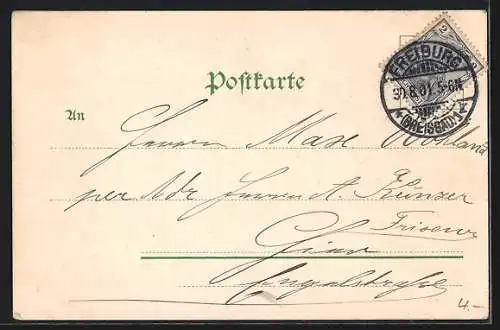 2
FREIBURG
30.8.01. 5-6N
(BREISGAU)
Postkarte
An
Herrn Max Wohland
per Adr Herrn A. Künzer
Friseur
Hier
Engelstraße
4.-